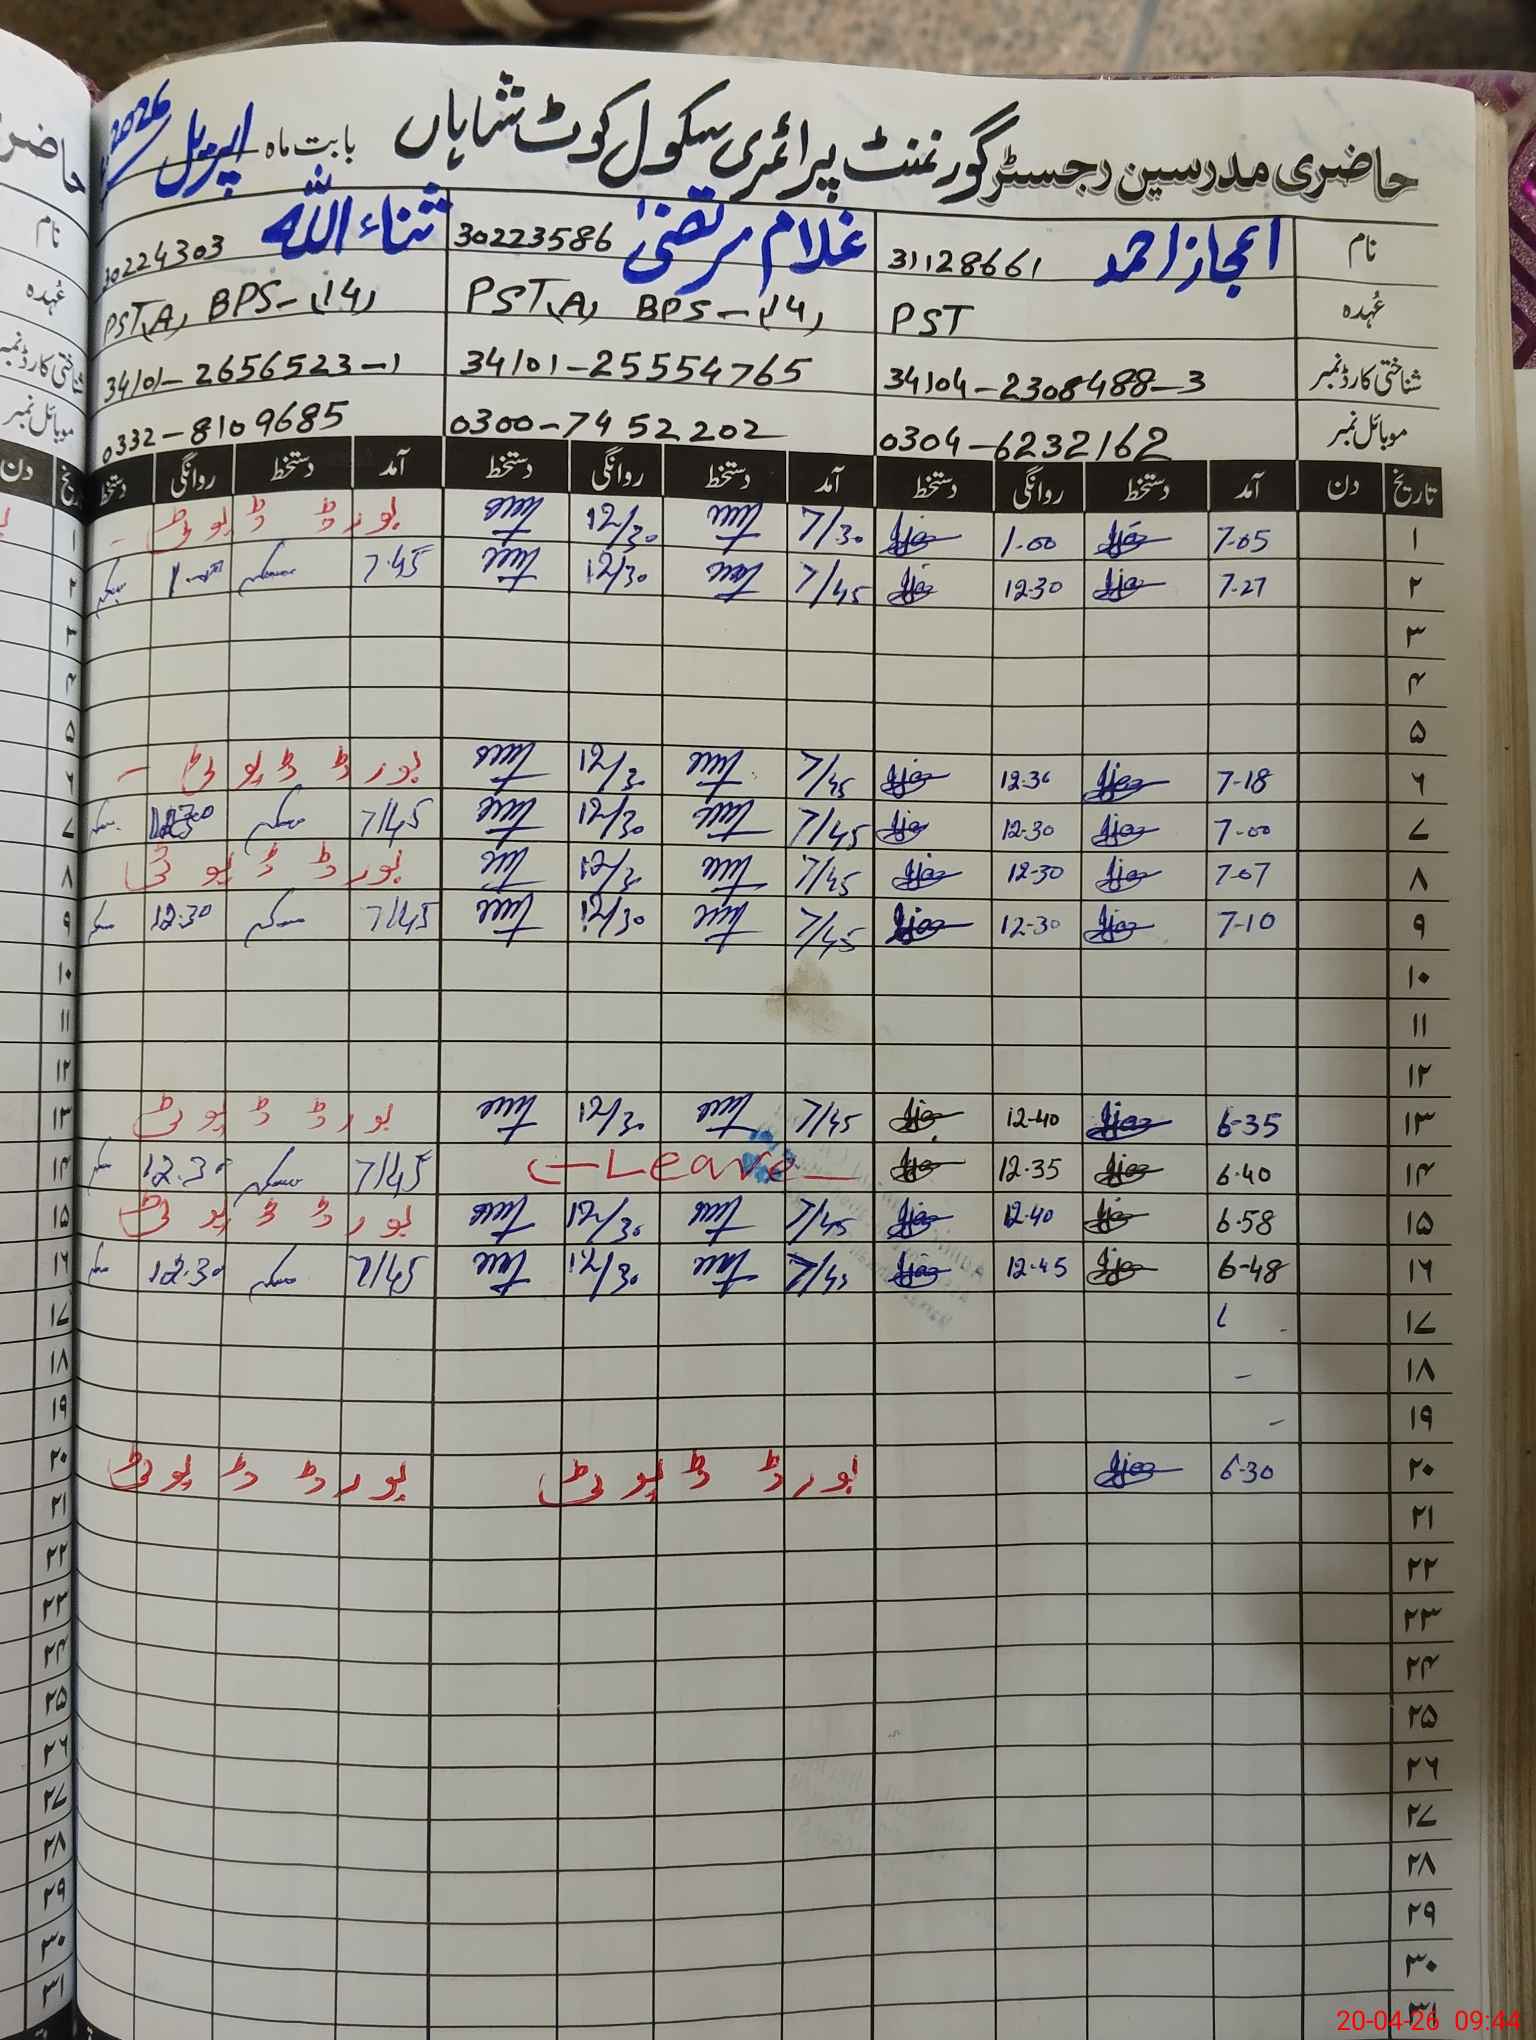 حاضری مدرسین رجسٹر گورنمنٹ پرائمری سکول کوٹ شاہاں بابت ماہ اپریل 2026
نام اعجاز احمد 31128661 غلام مرتضیٰ 30223586 ثناء اللہ 30224303
عُہدہ PST PST(A) BPS-(14) PST(A) BPS-(14)
شناختی کارڈ نمبر 34104-2308488-3 34101-25554765 34101-2656523-1
موبائل نمبر 0304-6232162 0300-7452202 0332-8109685
تاریخ دن آمد دستخط روانگی دستخط آمد دستخط روانگی دستخط آمد دستخط روانگی دستخط
۱ 7-05 1-00 7/30 12/30 بورڈ ڈیوٹی
۲ 7-27 12-30 7/45 12/30 7-45
۳
۴
۵
۶ 7-18 12-30 7/45 12/30 بورڈ ڈیوٹی
۷ 7-00 12-30 7/45 12/30 7/45
۸ 7-07 12-30 7/45 12/30 بورڈ ڈیوٹی
۹ 7-10 12-30 7/45 12/30 7/45 12-30
۱۰
۱۱
۱۲
۱۳ 6-35 12-40 7/45 12/30 بورڈ ڈیوٹی
۱۴ 6-40 12-35 Leave 7/45 12-30
۱۵ 6-58 12-40 7/45 12/30 بورڈ ڈیوٹی
۱۶ 6-48 12-45 7/45 12/30 7/45 12-30
۱۷
۱۸
۱۹
۲۰ 6-30 بورڈ ڈیوٹی بورڈ ڈیوٹی
۲۱
۲۲
۲۳
۲۴
۲۵
۲۶
۲۷
۲۸
۲۹
۳۰
۳۱
20-04-26 09:44